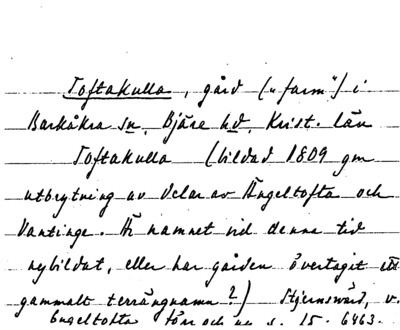 Toftakulla, gård („farm") i
Barkåkra sn, Bjäre hd, Krist. län
Toftakulla (bildad 1809 gm
utbrytning av delar av Ängeltofta och
Vantinge. Är namnet vid denna tid
nybildat, eller har gården övertagit ett
gammalt terrängnamn?) Stjernswärd, v.
Engeltofta förr och nu s. 15. 6463.